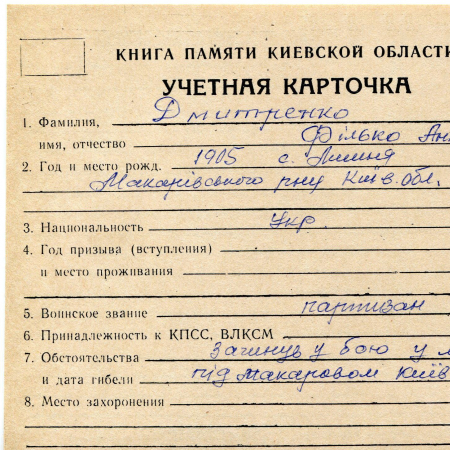 КНИГА ПАМЯТИ КИЕВСКОЙ ОБЛАСТИ
УЧЕТНАЯ КАРТОЧКА
1. Фамилия, Дмитренко
имя, отчество Філько Ан
2. Год и место рожд. 1905 с. Липиня
Макарівського р-ну Київ. обл.
3. Национальность укр.
4. Год призыва (вступления)
и место проживания
5. Воинское звание партизан
6. Принадлежность к КПСС, ВЛКСМ
7. Обстоятельства загинув у бою у
и дата гибели під Макаровом Київ
8. Место захоронения